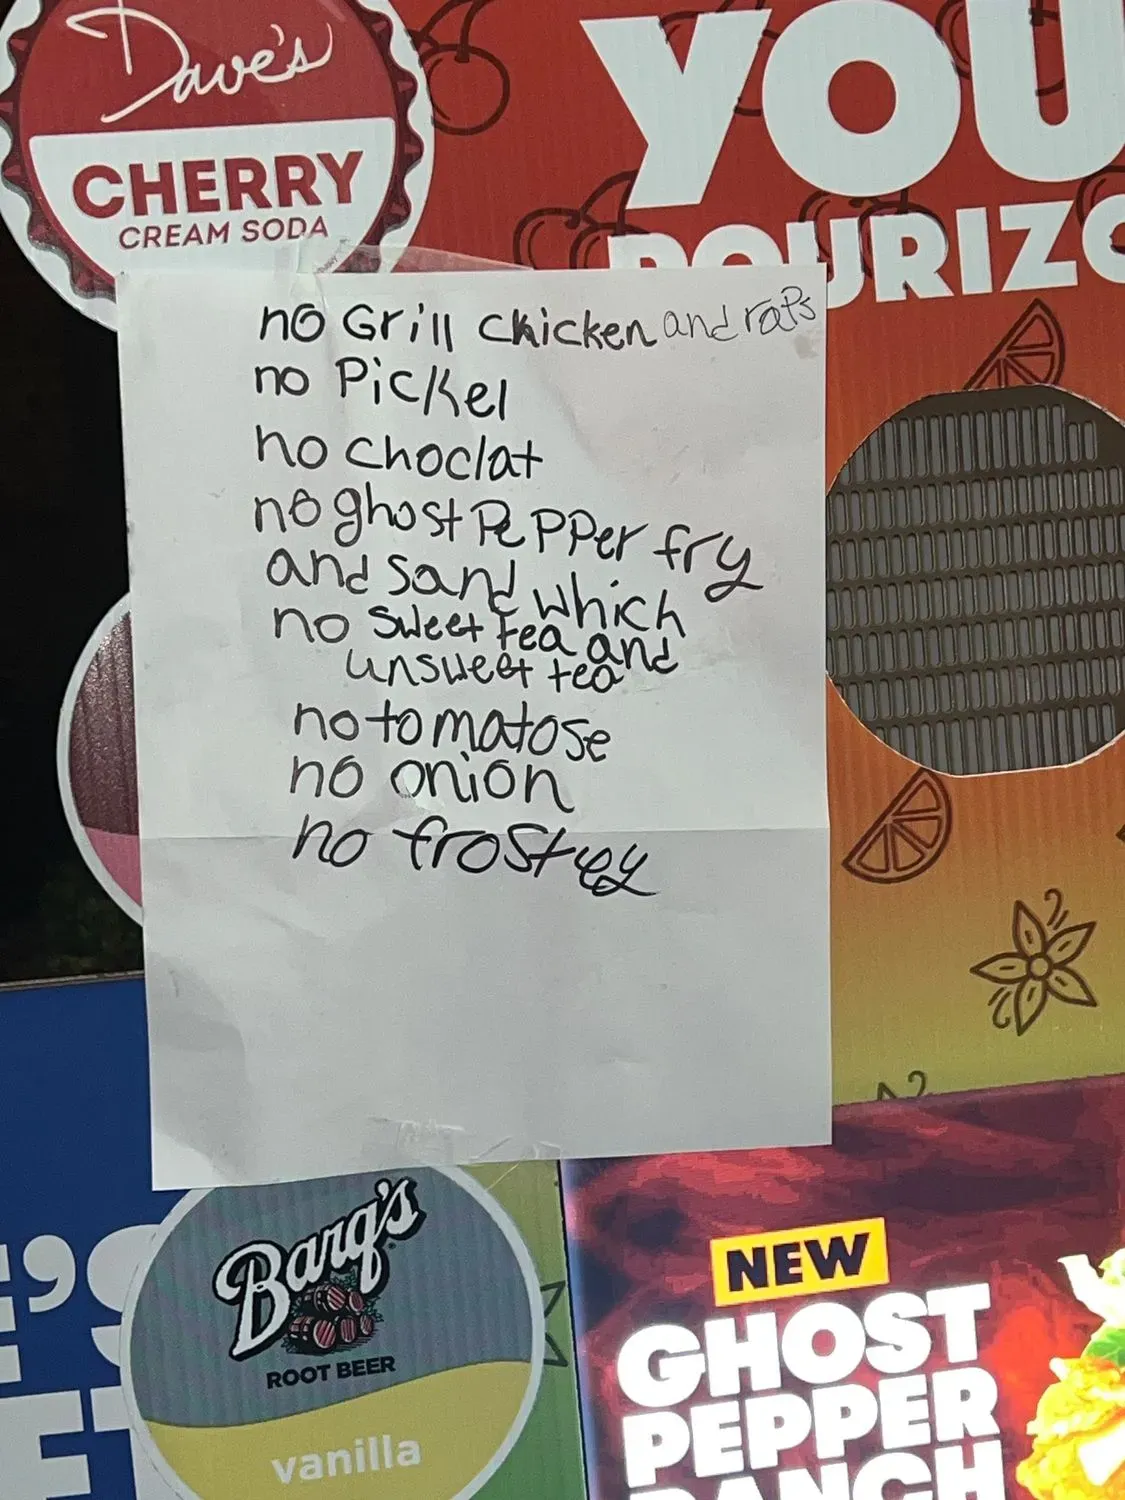 Dave's
CHERRY
CREAM SODA
YOU
POURIZO
no Grill chicken and raps
no Pickel
no choclat
no ghost PePPer fry
and sand which
no sweet tea and
unsweet tea
no tomatose
no onion
no frostey
Barq's
ROOT BEER
vanilla
NEW
GHOST
PEPPER
RANCH